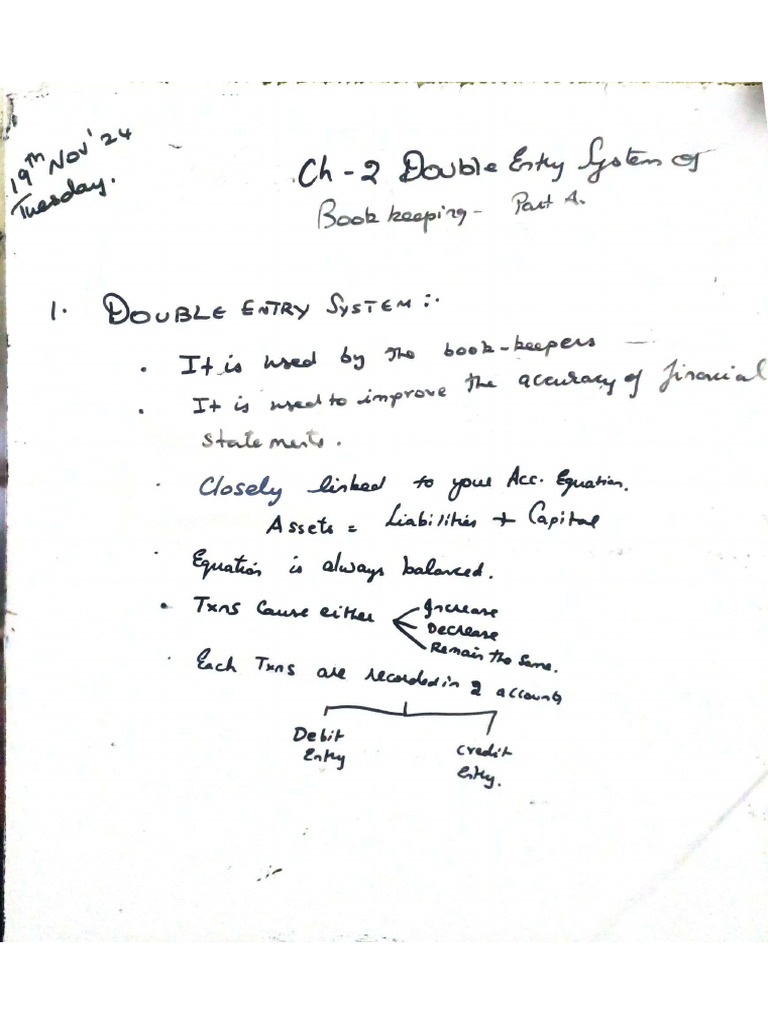 19th Nov'24
Tuesday.
Ch - 2 Double Entry System of
Book keeping - Part A.
1. DOUBLE ENTRY SYSTEM :-
• It is used by the book-keepers
• It is used to improve the accuracy of financial
statements.
• Closely linked to your Acc. Equation.
Assets = Liabilities + Capital
• Equation is always balanced.
• Txns cause either
Increase
Decrease
Remain the same.
• Each Txns are recorded in 2 accounts
Debit
Entry
Credit
Entry.